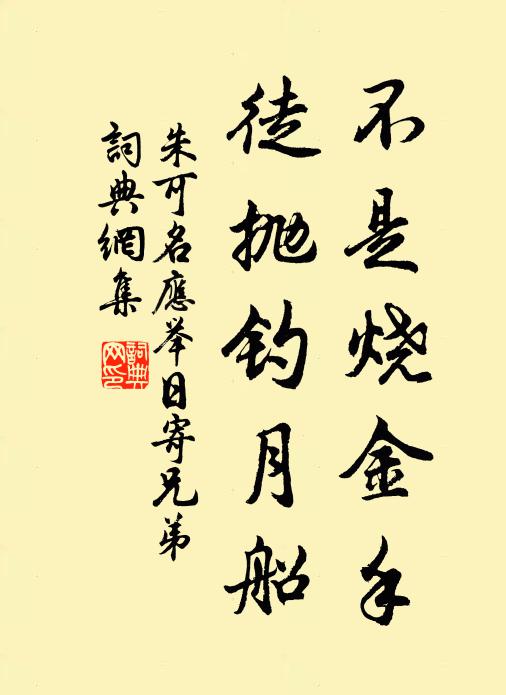 不是烧金手
徒抛钓月船
朱可名應举日寄兄弟
詞典網集
詞典
网印